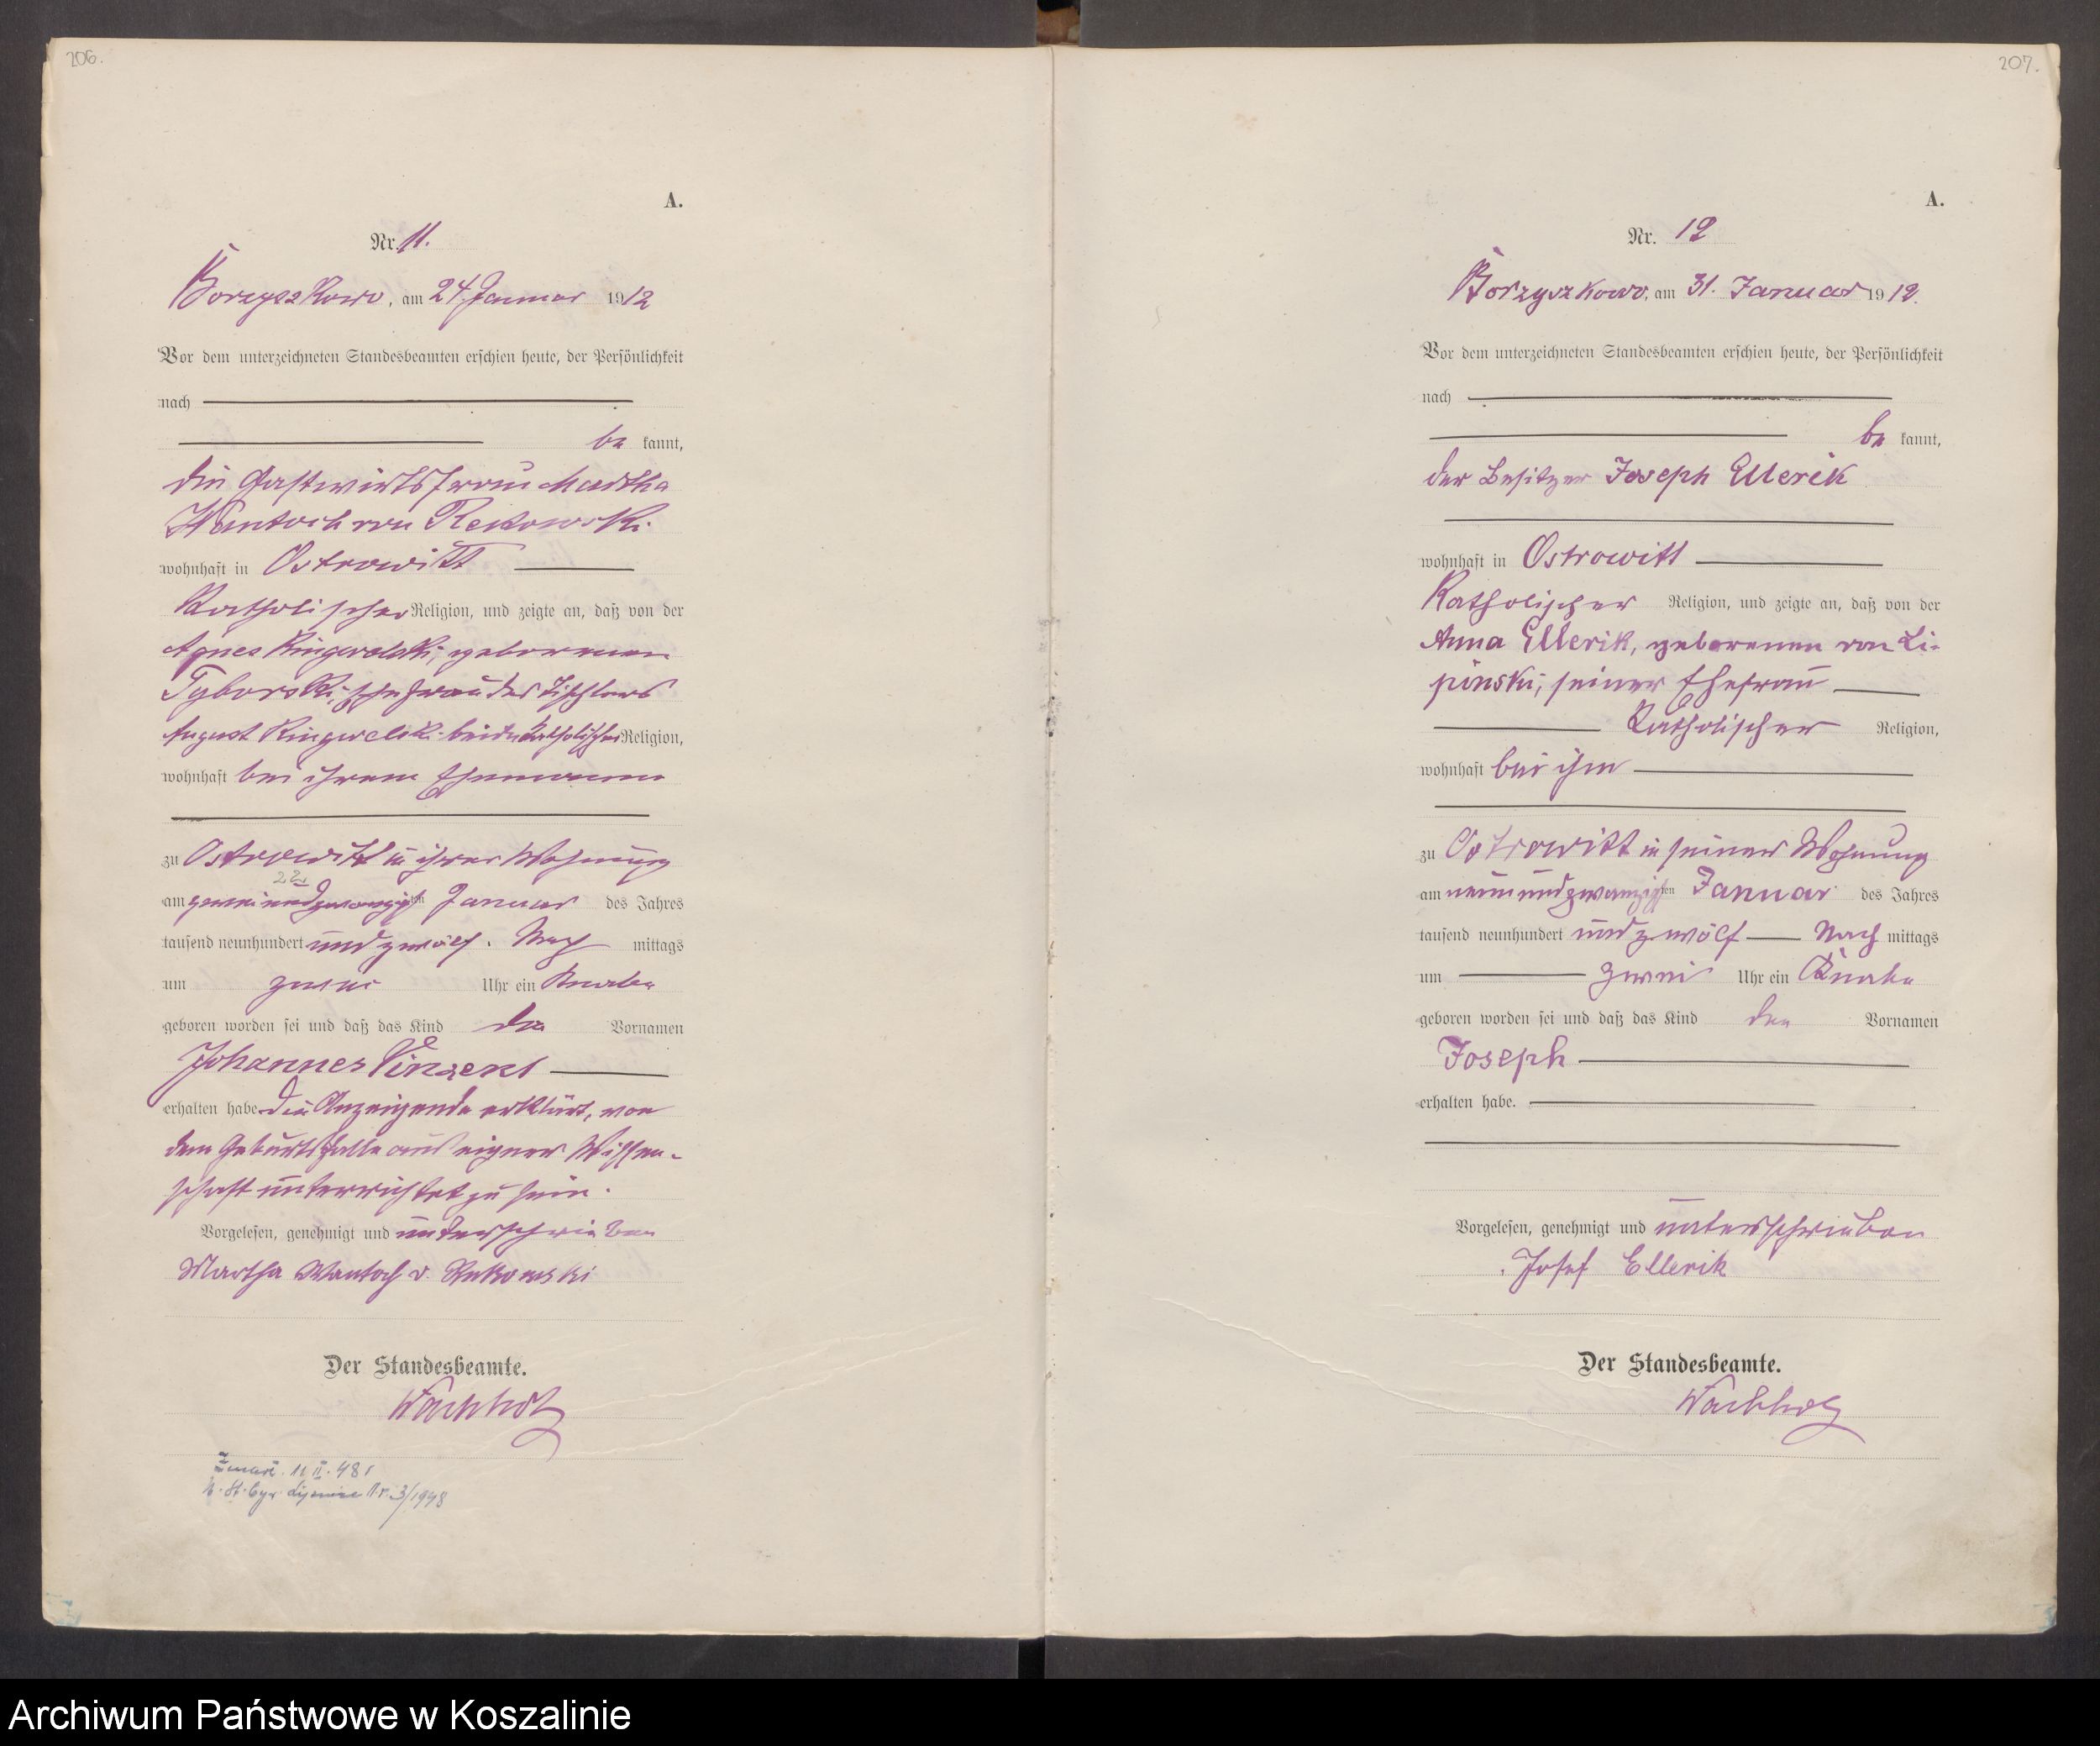 206.
A.
Nr. 11.
Borzyszkowo, am 24 Januar 1912
Vor dem unterzeichneten Standesbeamten erschien heute, der Persönlichkeit
nach
be kannt,
die Gastwirtsfrau Martha
Wantoch von Rekowski
wohnhaft in Ostrowitt
Katholischer Religion, und zeigte an, daß von der
Agnes Ringwelski, geborenen
Tyborski, Ehefrau des Tischlers
August Ringwelski beide katholischer Religion,
wohnhaft bei ihrem Ehemanne
zu Ostrowitt in ihrer Wohnung
22
am zweiundzwanzigsten Januar des Jahres
tausend neunhundert und zwölf. Nach mittags
um zwei Uhr ein Knabe
geboren worden sei und daß das Kind die Vornamen
Johannes Vinzent
erhalten habe. Die Anzeigende erklärt, von
dem Geburtsfalle aus eigner Wissen-
schaft unterrichtet zu sein.
Vorgelesen, genehmigt und unterschrieben
Martha Wantoch v. Rekowski
Der Standesbeamte.
Wachholz
Zmarł. 11 II. 48 r
Nr. 3/1948
207.
A.
Nr. 12
Borzyszkowo, am 31. Januar 1912.
Vor dem unterzeichneten Standesbeamten erschien heute, der Persönlichkeit
nach
be kannt,
der Besitzer Joseph Ellerik
wohnhaft in Ostrowitt
Katholischer Religion, und zeigte an, daß von der
Anna Ellerik, geborenen von Li-
pinski, seiner Ehefrau
Katholischer Religion,
wohnhaft bei ihm
zu Ostrowitt in seiner Wohnung
am neunundzwanzigsten Januar des Jahres
tausend neunhundert und zwölf Nach mittags
um zwei Uhr ein Knabe
geboren worden sei und daß das Kind den Vornamen
Joseph
erhalten habe.
Vorgelesen, genehmigt und unterschrieben
Josef Ellerik
Der Standesbeamte.
Wachholz
Archiwum Państwowe w Koszalinie